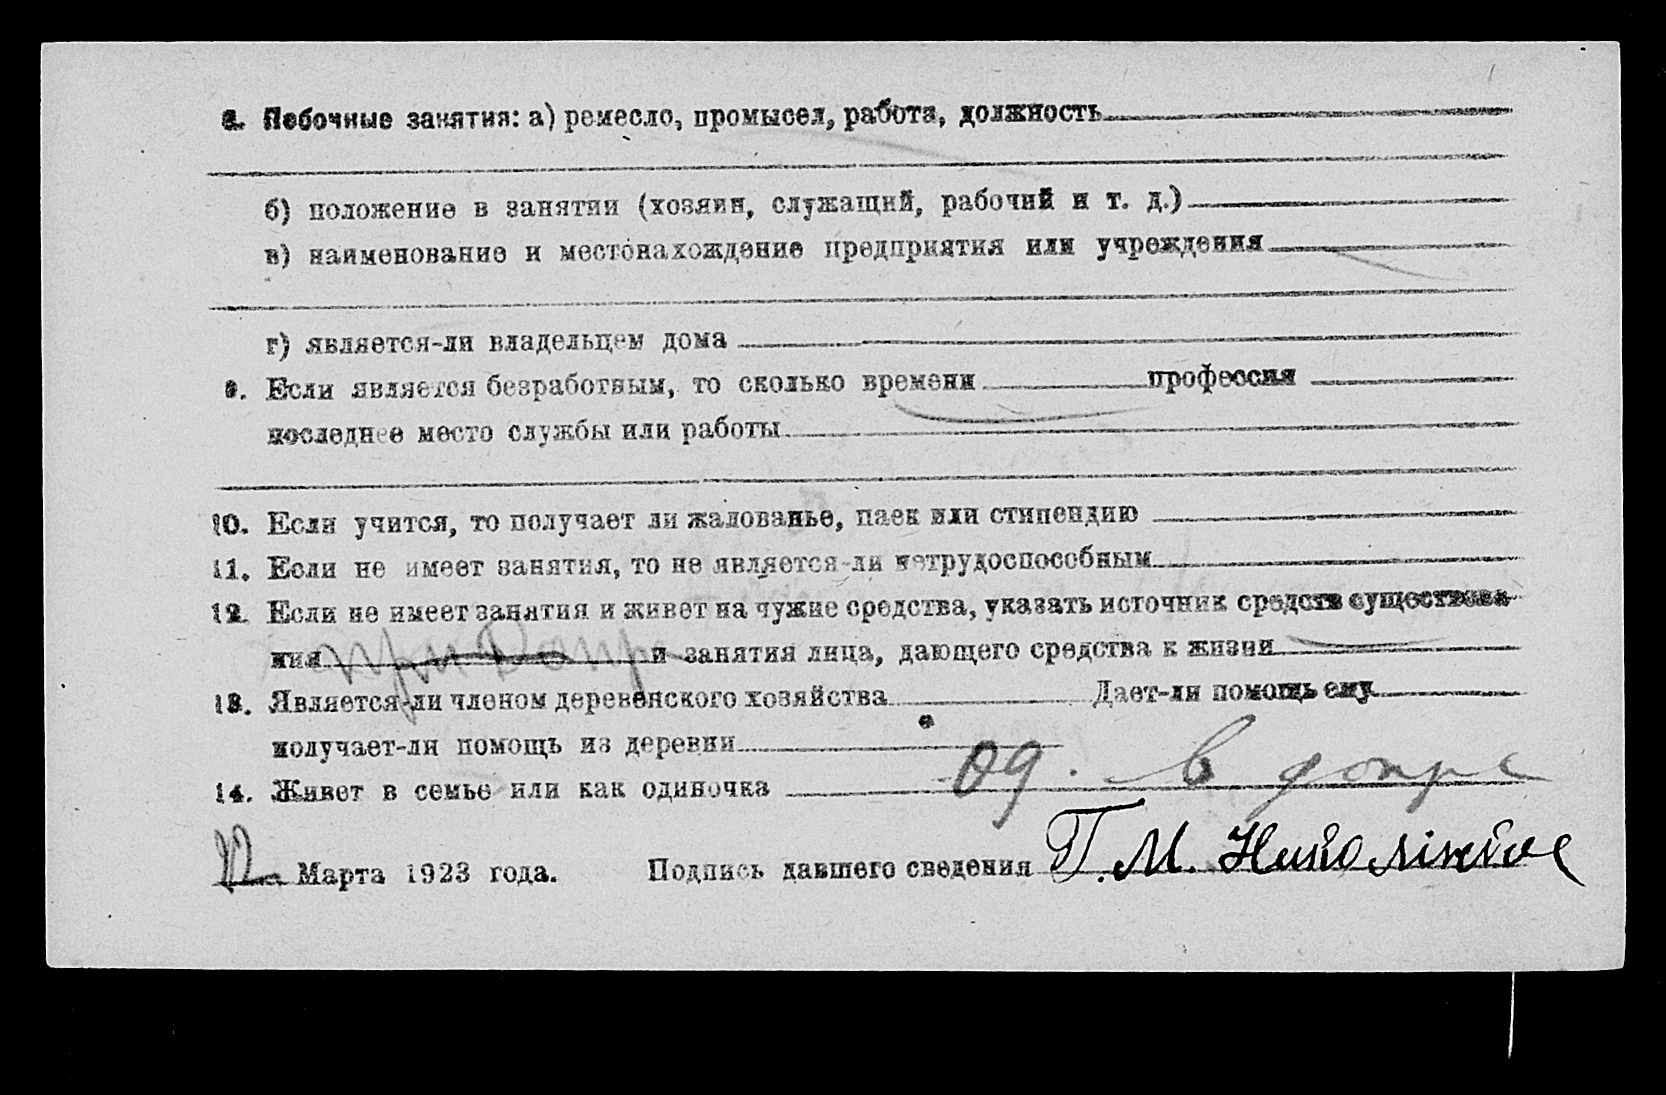 8. Побочные занятия: а) ремесло, промысел, работа, должность
б) положение в занятии (хозяин, служащий, рабочий и т. д.)
в) наименование и местонахождение предприятия или учреждения
г) является-ли владельцем дома
9. Если является безработным, то сколько времени профессия
последнее место службы или работы
10. Если учится, то получает ли жалованье, паек или стипендию
11. Если не имеет занятия, то не является-ли нетрудоспособным
12. Если не имеет занятия и живет на чужие средства, указать источник средств существова-
ния при Допре и занятия лица, дающего средства к жизни
13. Является-ли членом деревенского хозяйства Дает-ли помощь ему
получает-ли помощь из деревни
14. Живет в семье или как одиночка од. в допре
Марта 1923 года. Подпись давшего сведения Г. М.